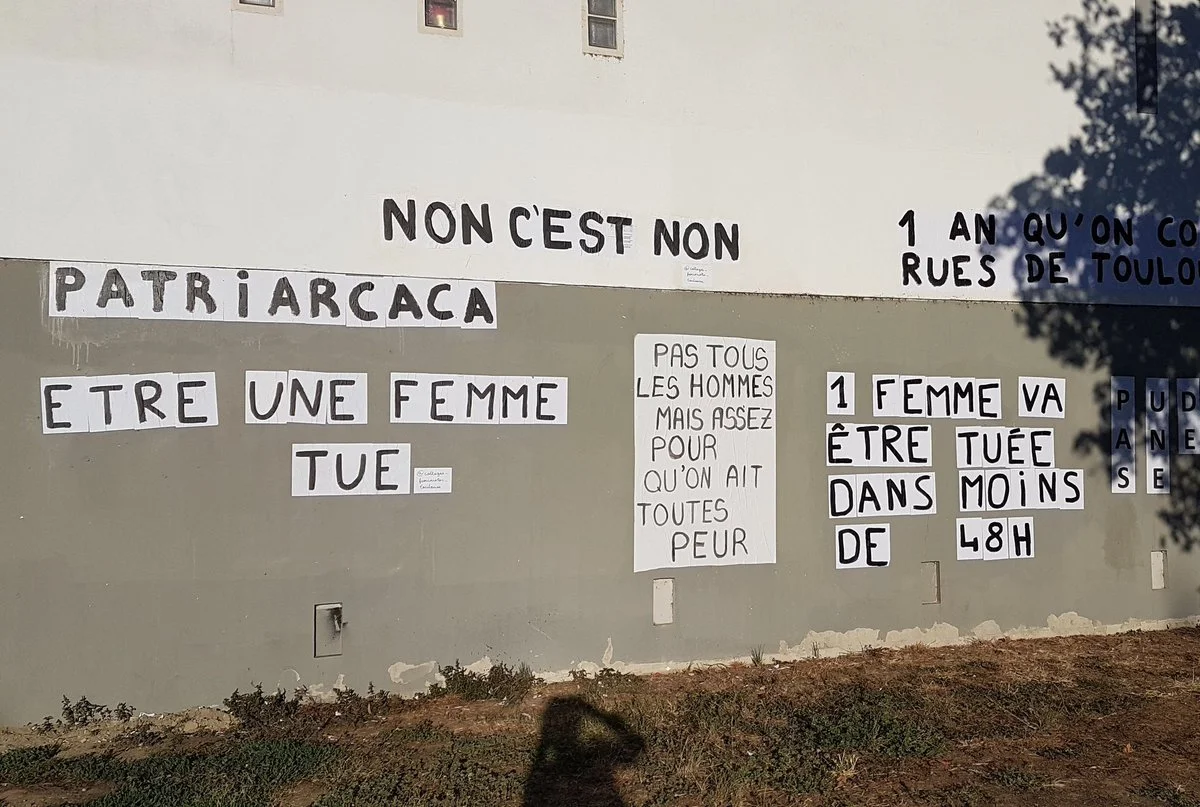 NON C'EST NON
1 AN QU'ON CO
RUES DE TOULO
PATRiARCACA
ETRE UNE FEMME
TUE
PAS TOUS
LES HOMMES
MAIS ASSEZ
POUR
QU'ON AIT
TOUTES
PEUR
1 FEMME VA
ÊTRE TUÉE
DANS MOiNS
DE 48H
P U D
A N E
S E